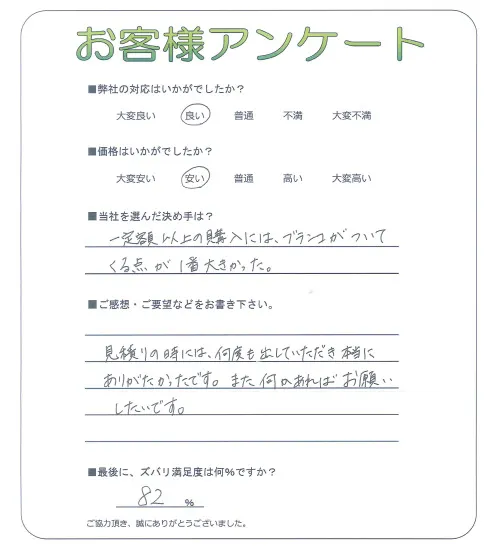 お客様アンケート
■弊社の対応はいかがでしたか？
大変良い 良い 普通 不満 大変不満
■価格はいかがでしたか？
大変安い 安い 普通 高い 大変高い
■当社を選んだ決め手は？
一定額以上の購入には、ブランコがついて
くる点が1番大きかった。
■ご感想・ご要望などをお書き下さい。
見積りの時には、何度も出していただき本当に
ありがたかったです。また何かあればお願い
したいです。
■最後に、ズバリ満足度は何%ですか？
82 %
ご協力頂き、誠にありがとうございました。